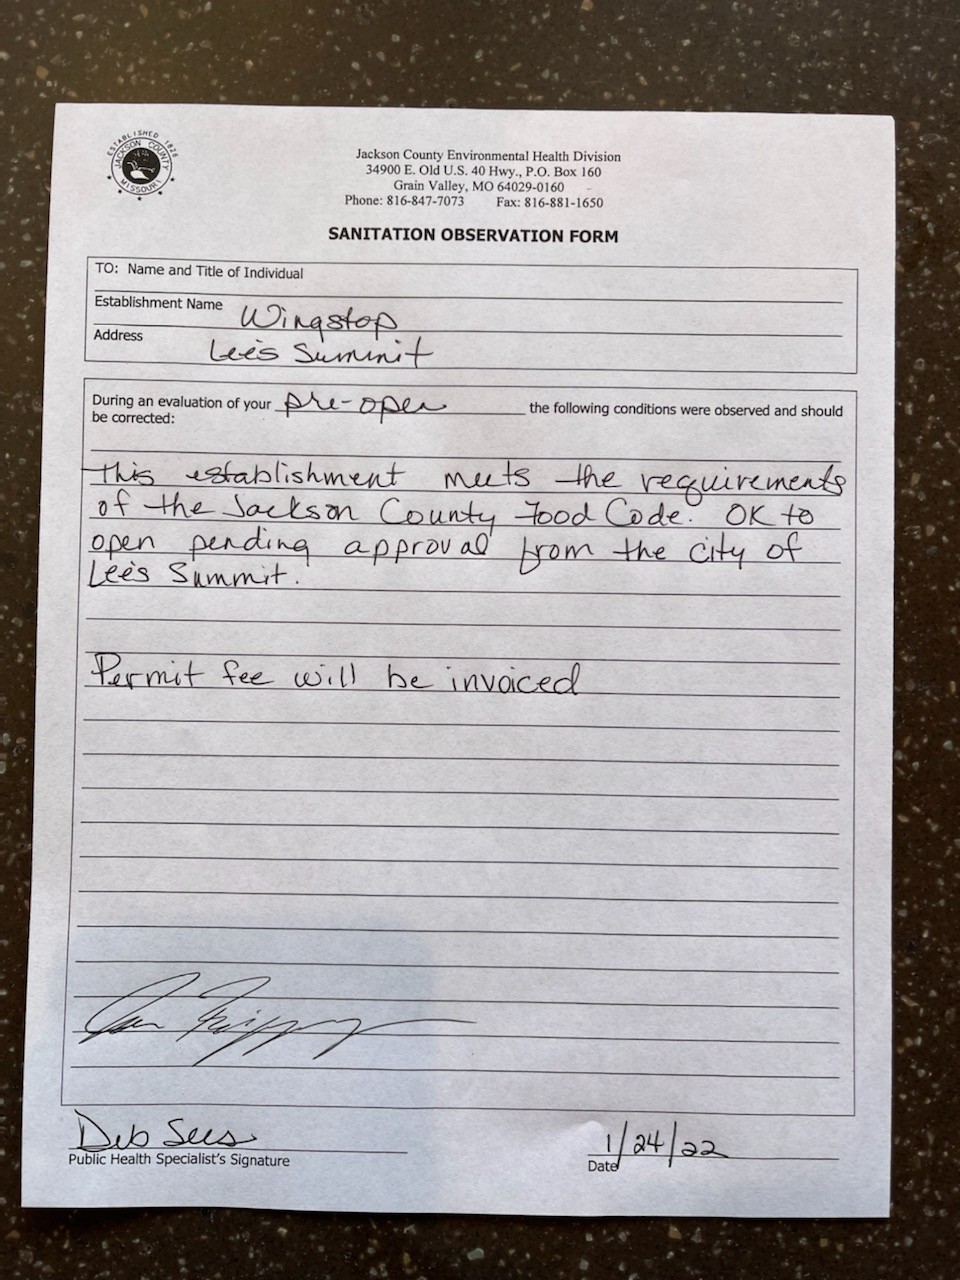 ESTABLISHED 1826
JACKSON COUNTY
MISSOURI
Jackson County Environmental Health Division
34900 E. Old U.S. 40 Hwy., P.O. Box 160
Grain Valley, MO 64029-0160
Phone: 816-847-7073 Fax: 816-881-1650
SANITATION OBSERVATION FORM
TO: Name and Title of Individual
Establishment Name Wingstop
Address Lee's Summit
During an evaluation of your pre-open the following conditions were observed and should
be corrected:
This establishment meets the requirements
of the Jackson County Food Code. OK to
open pending approval from the city of
Lee's Summit.
Permit fee will be invoiced
Deb Sees
Public Health Specialist's Signature
1/24/22
Date